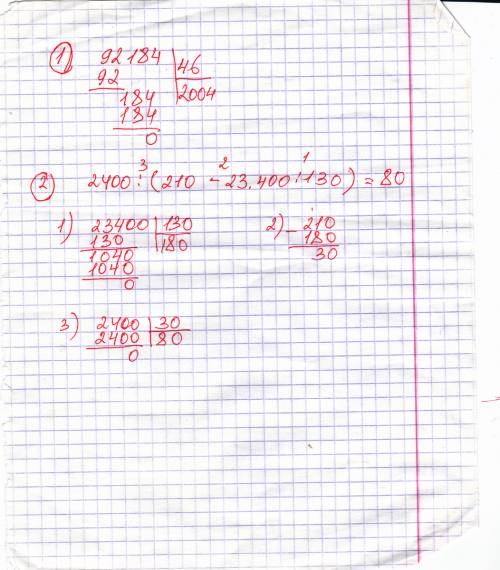 1) 92184 | 46
92 | 2004
184
184
0
3 2 1
2) 2400 : (210 - 23.400 : 130) = 80
1) 23400 | 130 2) - 210
130 | 180 180
1040 30
1040
0
3) 2400 | 30
2400 | 80
0